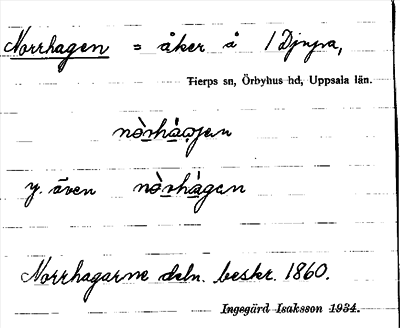 Norrhagen = åker å / Djupa,
Tierps sn, Örbyhus hd, Uppsala län.
nòrhà̱gen
y. även nòrhàgen
Norrhagarne deln. beskr. 1860.
Ingegärd Isaksson 1934.